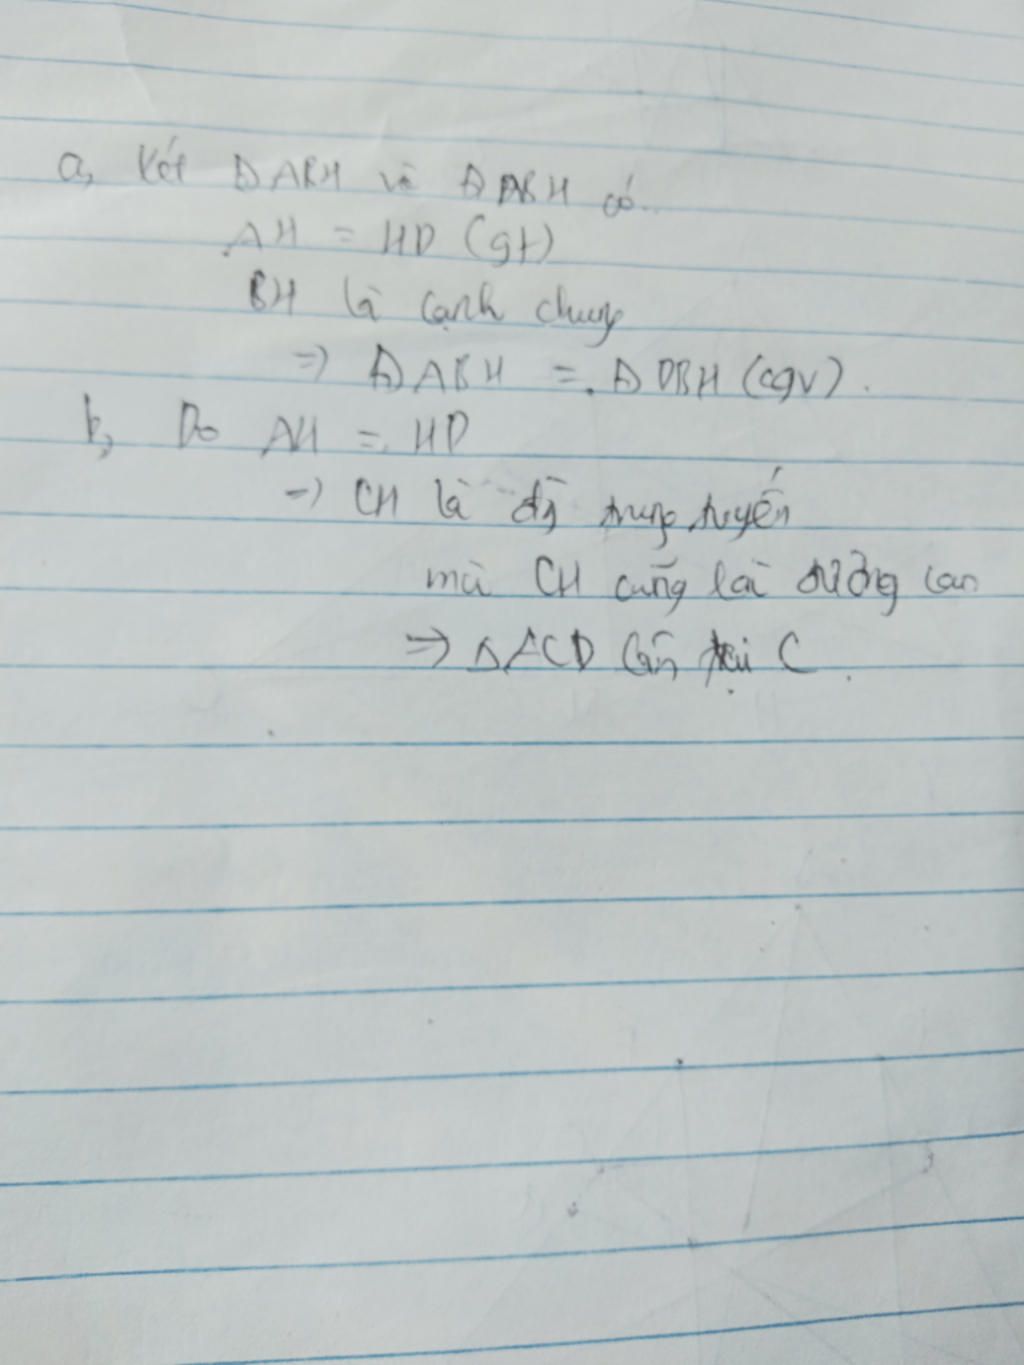 a, Xét Δ ABH và Δ DBH có.
AH = HD (gt)
BH là cạnh chung
=> Δ ABH = Δ DBH (cgv).
b, Do AH = HD
=> CH là đg trung tuyến
mà CH cũng là đường cao
=> Δ ACD cân tại C.